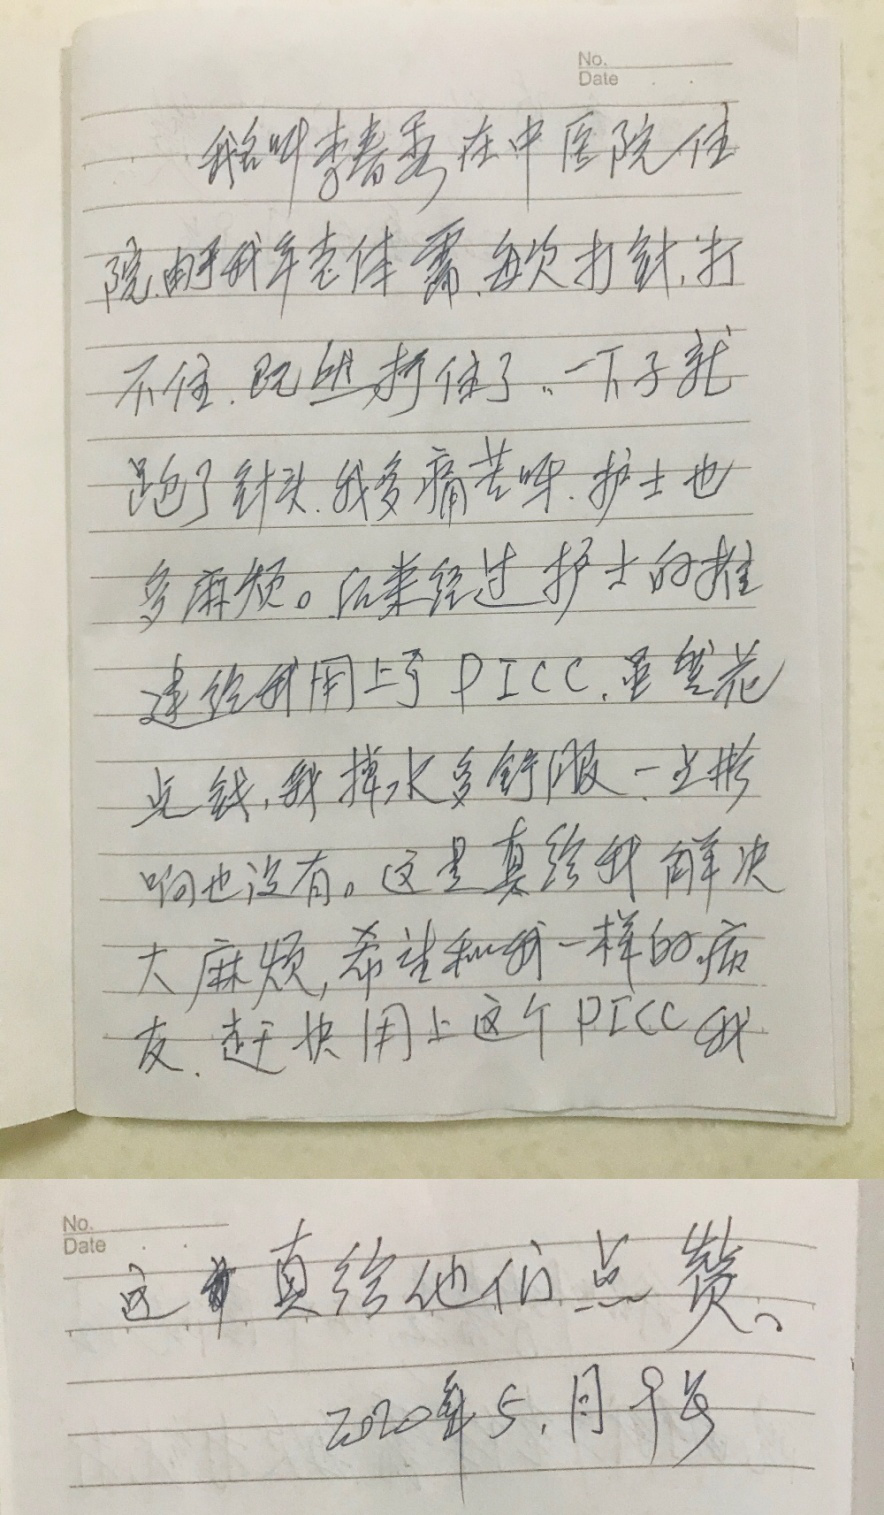 No.
Date
我名叫李春秀在中医院住
院,由于我年老体需,每次打针,打
不住,既然打住了,一下子就
跑了针头,我多痛苦呀,护士也
多麻烦。后来经过护士的推
建给我用上了PICC,虽然花
点钱,我掉水多舒服,一点影
响也没有。这是真给我解决
大麻烦,希望和我一样的病
友,赶快用上这个PICC 我
No.
Date
这 真给他们点赞。
2020年5.月9号